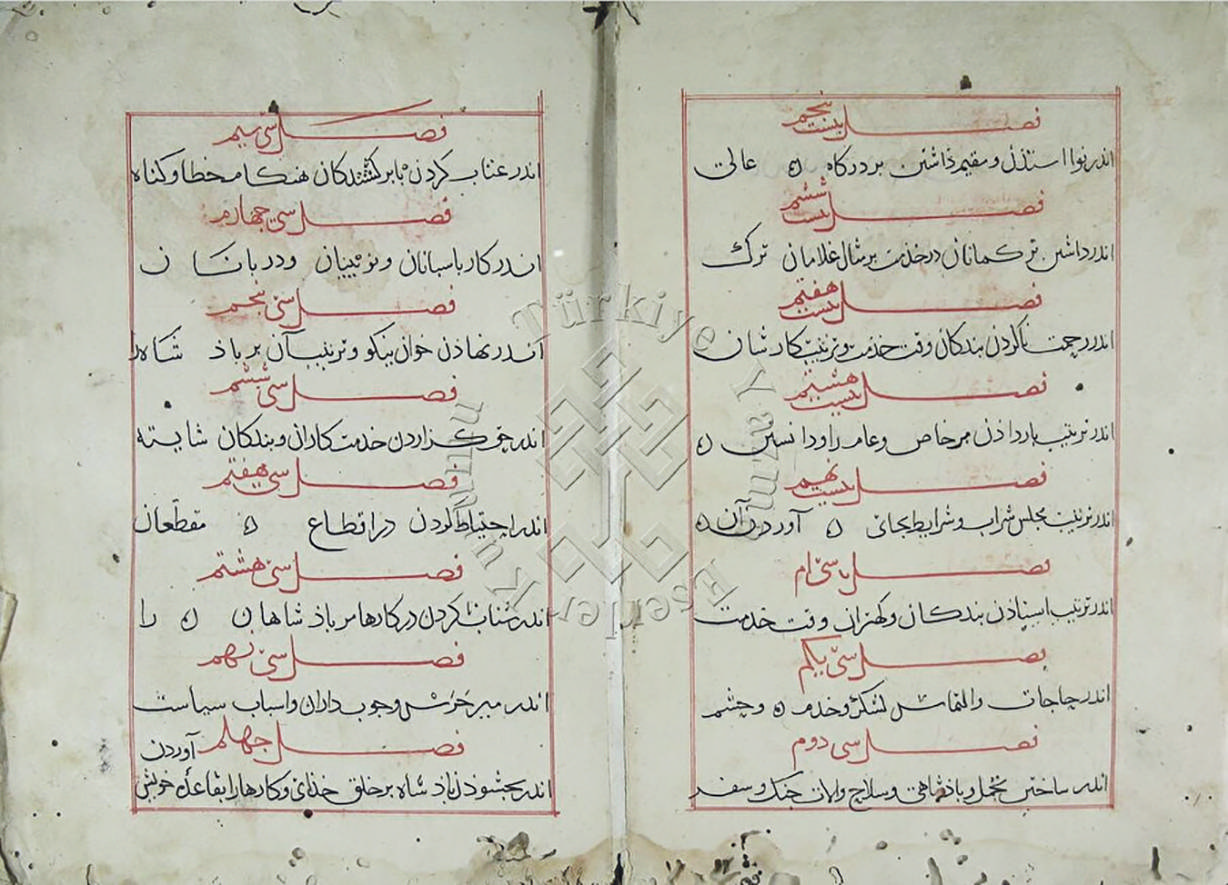 فصل بیست پنجم
اندر نوا استدن و مقیم داشتن بر درکاه ه عالی
فصل بیست ششم
اندر داشتن ترکمانان در خدمت بر مثال غلامان ترک
فصل بیست هفتم
اندر زحمت ناکردن بندکان وقت خدمت و ترتیب کار شان
فصل بیست هشتم
اندر ترتیب بار دادن مر خاص و عام را و دانستن ه
فصل بیست نهم
اندر ترتیب مجلس شراب و شرایط بجای ه آوردن آن ه
فصل سی ام
اندر ترتیب استادن بندکان و کهتران وقت خدمت
فصل سی یکم
اندر حاجات و التماس لشکر و خدم ه و حشم
فصل سی دوم
اندر ساختن تجمل و باذشاهی و سلاح و الات جنک و سفر
فصل سی سیم
اندر عتاب کردن با بر کشندکان هنکام خطا و کناه
فصل سی چهارم
اندر کار باسبانان و نوبتیان و دربانان
فصل سی بنجم
اندر نهاذن خوان نیکو و ترتیب آن بر باذ شاه را
فصل سی ششم
اندر حق کزاردن خدمت کاران و بندکان شایسته
فصل سی هفتم
اندر احتیاط کردن در اقطاع ه مقطعان
فصل سی هشتم
اندر شتاب کردن در کارها مر باذ شاهان ه را
فصل سی نهم
اندر میر حرس و جوب داران و اسباب سیاست
فصل چهلم آوردن
اندر بخشوذن باذ شاه بر خلق خذای و کارها را بقاعده خویش
Türkiye Yazma Eserler Kurumu